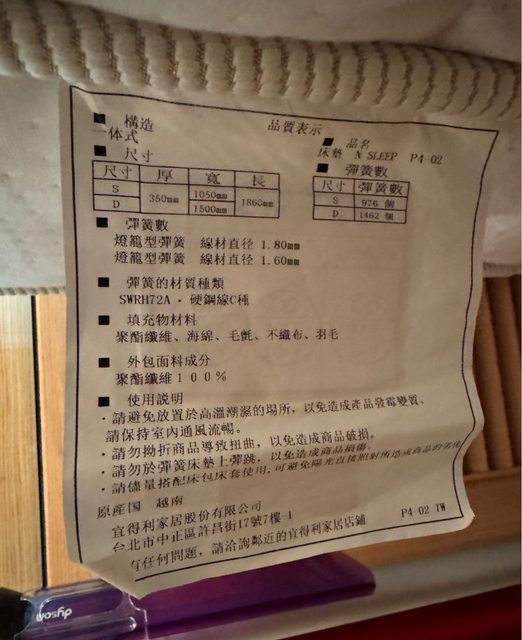 品質表示
■ 構造
一体式
■ 品名
床墊 N SLEEP P4-02
■ 尺寸
尺寸 厚 寬 長
S 350mm 1050mm 1860mm
D 1500mm
■ 彈簧數
尺寸 彈簧數
S 976 個
D 1462 個
■ 彈簧數
燈籠型彈簧 線材直径 1.80mm
燈籠型彈簧 線材直径 1.60mm
■ 彈簧的材質種類
SWRH72A・硬鋼線C種
■ 填充物材料
聚酯纖維、海綿、毛氈、不織布、羽毛
■ 外包面料成分
聚酯纖維100%
■ 使用説明
・請避免放置於高溫潮濕的場所，以免造成產品發霉變質。
請保持室內通風流暢。
・請勿拗折商品導致扭曲，以免造成商品破損。
・請勿於彈簧床墊上彈跳，以免造成商品損傷。
・請儘量搭配床包床套使用,可避免陽光直接照射所造成商品的劣化
原産国 越南
宜得利家居股份有限公司
台北市中正區許昌街17號7樓-1
有任何問題，請洽詢鄰近的宜得利家居店鋪
P4-02 TW
dyson